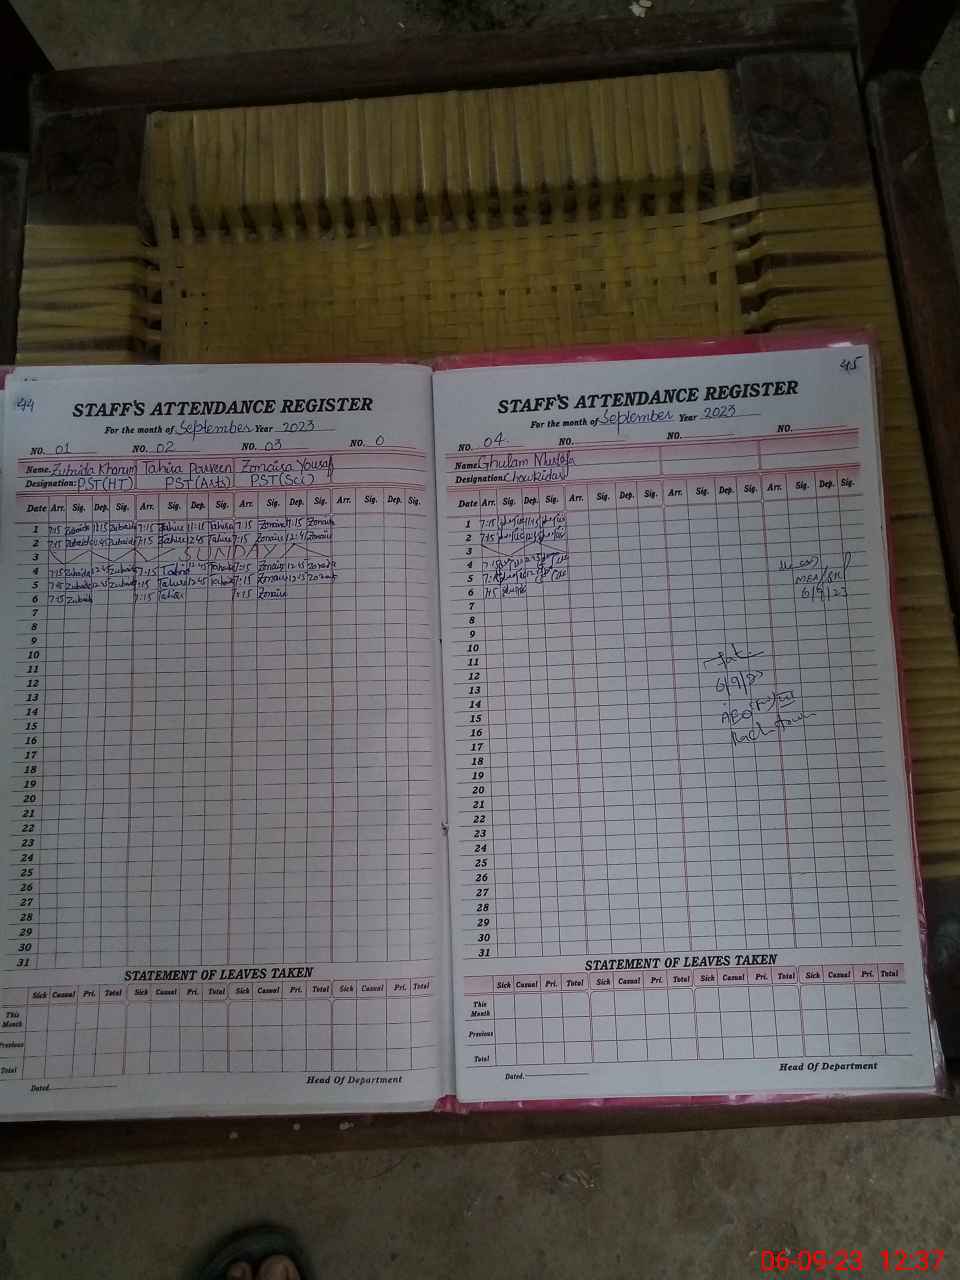 44
STAFF'S ATTENDANCE REGISTER
For the month of September Year 2023
NO. 01 NO. 02 NO. 03 NO. 0
Name. Zubaida Khanum Tahira Parveen Zonaisa Yousaf
Designation: PST(HT) PST(Arts) PST(Sci)
Date Arr. Sig. Dep. Sig. Arr. Sig. Dep. Sig. Arr. Sig. Dep. Sig. Arr. Sig. Dep. Sig.
1 7:15 Zubaida 11:15 Zubaida 7:15 Tahira 11:15 Tahira 7:15 Zonaisa 11:15 Zonaisa
2 7:15 Zubaida 12:45 Zubaida 7:15 Tahira 12:45 Tahira 7:15 Zonaisa 12:45 Zonaisa
3 SUNDAY
4 7:15 Zubaida 12:45 Zubaida 7:15 Tahira 12:45 Tahira 7:15 Zonaisa 12:45 Zonaisa
5 7:15 Zubaida 12:45 Zubaida 7:15 Tahira 12:45 Tahira 7:15 Zonaisa 12:45 Zonaisa
6 7:15 Zubaida 7:15 Tahira 7:15 Zonaisa
7
8
9
10
11
12
13
14
15
16
17
18
19
20
21
22
23
24
25
26
27
28
29
30
31
STATEMENT OF LEAVES TAKEN
Sick Casual Pri. Total Sick Casual Pri. Total Sick Casual Pri. Total Sick Casual Pri. Total
This Month
Previous
Total
Dated. Head Of Department
45
STAFF'S ATTENDANCE REGISTER
For the month of September Year 2023
NO. 04. NO. NO. NO.
Name Ghulam Mustafa
Designation: Chowkidar
Date Arr. Sig. Dep. Sig. Arr. Sig. Dep. Sig. Arr. Sig. Dep. Sig. Arr. Sig. Dep. Sig.
1 7:15 11:15
2 7:15 12:45
3
4 7:15 12:45
5 7:15 12:45
MEA
6 7:15
6/9/23
7
8
9
10
11
12
6/9/23
13
14
AEO
15
16
17
18
19
20
21
22
23
24
25
26
27
28
29
30
31
STATEMENT OF LEAVES TAKEN
Sick Casual Pri. Total Sick Casual Pri. Total Sick Casual Pri. Total Sick Casual Pri. Total
This Month
Previous
Total
Dated. Head Of Department
06-09-23 12:37